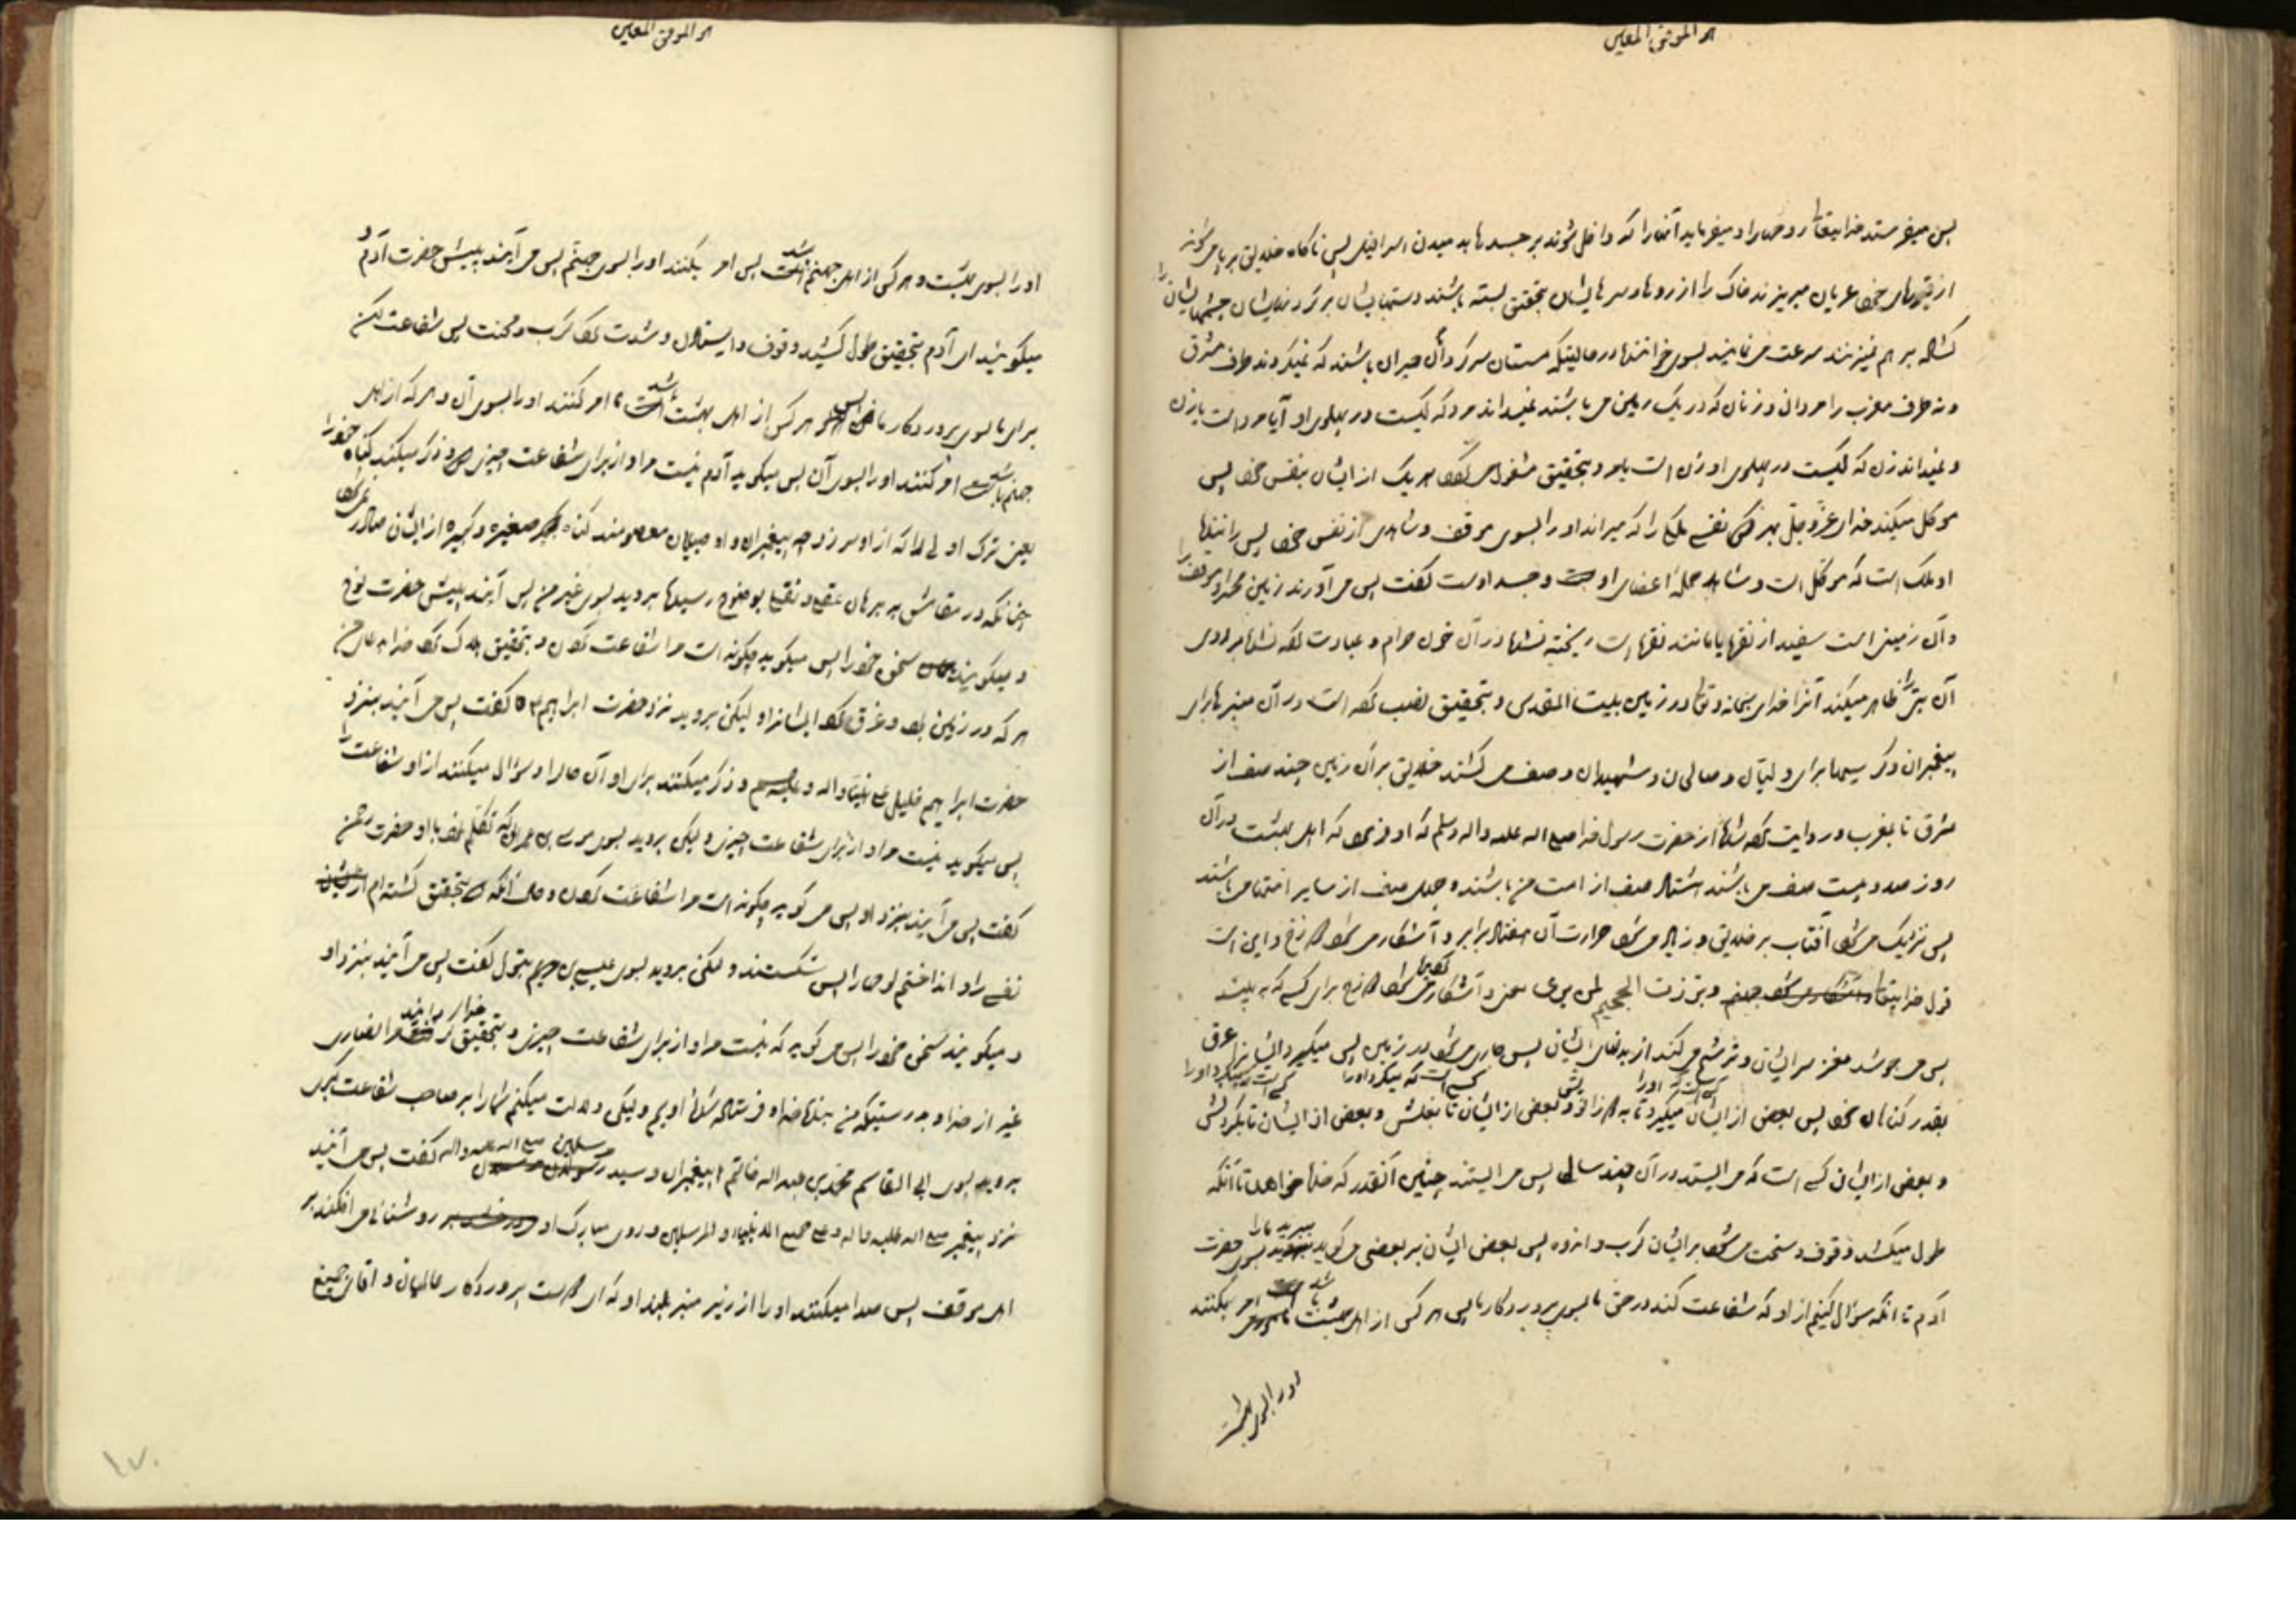 هو الموفق المعین
پس میفرستد خدایتعالی روحها را و میفرماید آنها را که داخل شوند بر جسدها بدمیدن اسرافیل پس ناگاه خلایق برپا میشوند
از قبرهای خود عریان میریزند خاک را از روها و سرهایشان بتحقیق بسته باشند دستهایشان بر گردنهایشان چشمهایشان را
گشاده بر هم نمیزنند سرعت می نمایند بسوی خوانندها در حالیتیکه مستان سرگردان حیران باشند که نمیگروند طرف مشرق
و نه طرف مغرب را مردان و زنان که در یک زمین می باشند نمیداند مرد که کیست در پهلوی او آیا مرد است یا زن
و نمیداند زن که کیست در پهلوی او زن است یا مرد و بتحقیق مشغول کرده هر یک از ایشان بنفس خود پس
موکل میکند خدای عزّ و جلّ بهر نفسی ملکی را که میراند او را بسوی موقف و شاهدی از نفس خود پس رانندها
او ملک است که موکل است و شاهد جملهٔ اعضای او و جسد اوست گفت پس می آورند زمین محشر و موقف را
و آن زمینی است سفید از نقره یا مانند نقره است ریخته نشده در آن خون حرام و عبادت کرده نشده بر روی
آن بتی را ظاهر میکند آنرا خدای سبحانه و تعالی در زمین بیت المقدس و بتحقیق نصب کرده است در آن منبرها برای
پیغمبران و کرسیها برای ولیان و صالحان و شهیدان و صف می کشند خلایق بر آن زمین چند صف از
مشرق تا بمغرب و روایت کرده شده از حضرت رسول خدا صلی الله علیه و اله و سلم که او فرمود که اهل بهشت در آن
روز صد و بیست صف می باشند هشتاد صف از امت من باشند و چهل صف از سایر امتها می باشند
پس نزدیک می شود آفتاب بر خلایق و زیاد می شود حرارت آن هفتاد برابر و آشکار می شود دوزخ و این است
قول خدایتعالی و برزت الجحیم لمن یری یعنی و آشکار کرده می شود دوزخ برای کسی که به بیند
پس می جوشد مغز سر ایشان و ترشح می کند از بدنهای ایشان پس جاری می شود در زمین پس میگیرد ایشانرا عرق
بقدر گناهان خود پس بعضی از ایشان کسی است که میگیرد او را تا به زانو و بعضی از ایشان تا بغلش و بعضی از ایشان تا بگردنش
و بعضی از ایشان کسی است که می ایستد در آن چند سالی پس می ایستند چنین آنقدر که خدا خواهد تا آنکه
طول میکشد وقوف و سخت می شود بر ایشان کرب و اندوه پس بعضی ایشان بر بعضی می گوید ببرید ما را بسوی حضرت
آدم تا آنکه سؤال کنیم از او که شفاعت کند در حق ما بسوی پروردگار ما پس هر کس از اهل بهشت باشد امر بکنند
او را بسوی بهشت
هو الموفق المعین
او را بسوی بهشت و هر کس از اهل جهنم باشد پس امر بکنند او را بسوی جهنم پس می آیند پیش حضرت آدم و
میگویند ای آدم بتحقیق طول کشید وقوف و ایستادن و شدت کرد کرب و محنت پس شفاعت کن
برای ما بسوی پروردگار ما پس هر کس از اهل بهشت باشد امر کنند او را بسوی آن و هر که از اهل
جهنم باشد امر کنند او را بسوی آن پس میگوید آدم نیست مرا از برای شفاعت چیزی و ذکر میکند گناه خود را
یعنی ترک اولی را که از او سر زد چه پیغمبران و اوصیاء معصومند گناه صغیره و کبیره از ایشان صادر نمی شود
چنانکه در مقامش به برهان عقلی و نقلی بوضوح رسیده بروید بسوی غیر من پس آیند پیش حضرت نوح
و میگویند سخن خود را پس میگوید چگونه است مرا شفاعت کردن و بتحقیق هلاک کرد خدا بدعای من
هر که در زمین بود و غرق کرد ایشانرا و لیکن بروید نزد حضرت ابراهیم گفت پس می آیند بنزد
حضرت ابراهیم خلیل علی نبینا و اله و علیه السلام و ذکر میکنند برای او آن حال را و سؤال میکنند از او شفاعت را
پس میگوید نیست مرا از برای شفاعت چیزی و لیکن بروید بسوی موسی بن عمران که تکلم نمود با او حضرت رحمن
گفت پس می آیند بنزد او پس می گوید چگونه است مرا شفاعت کردن و حال آنکه بتحقیق کشته ام
نفسی را و انداختم لوحها را پس شکستند و لکن بروید بسوی عیسی بن مریم بتول گفت پس می آیند بنزد او
و میگویند سخن خود را پس می گوید که نیست مرا از برای شفاعت چیزی و بتحقیق که خدا میدانند مرا نصاری
غیر از خدا و بدرستیکه من بنده خدا و فرستاده شده اویم و لیکن دلالت میکنم شما را بر صاحب شفاعت کبری
بروید بسوی ابی القاسم محمد بن عبد الله خاتم پیغمبران و سید مرسلین صلی الله علیه و اله گفت پس می آیند
نزد پیغمبر صلی الله علیه و اله و علی جمیع الانبیاء و المرسلین و روی مبارک او روشنائی می افکند بر
اهل موقف پس صدا میکنند او را از زیر منبر بلند او که ای دوست پروردگار عالمیان و آقای جمیع